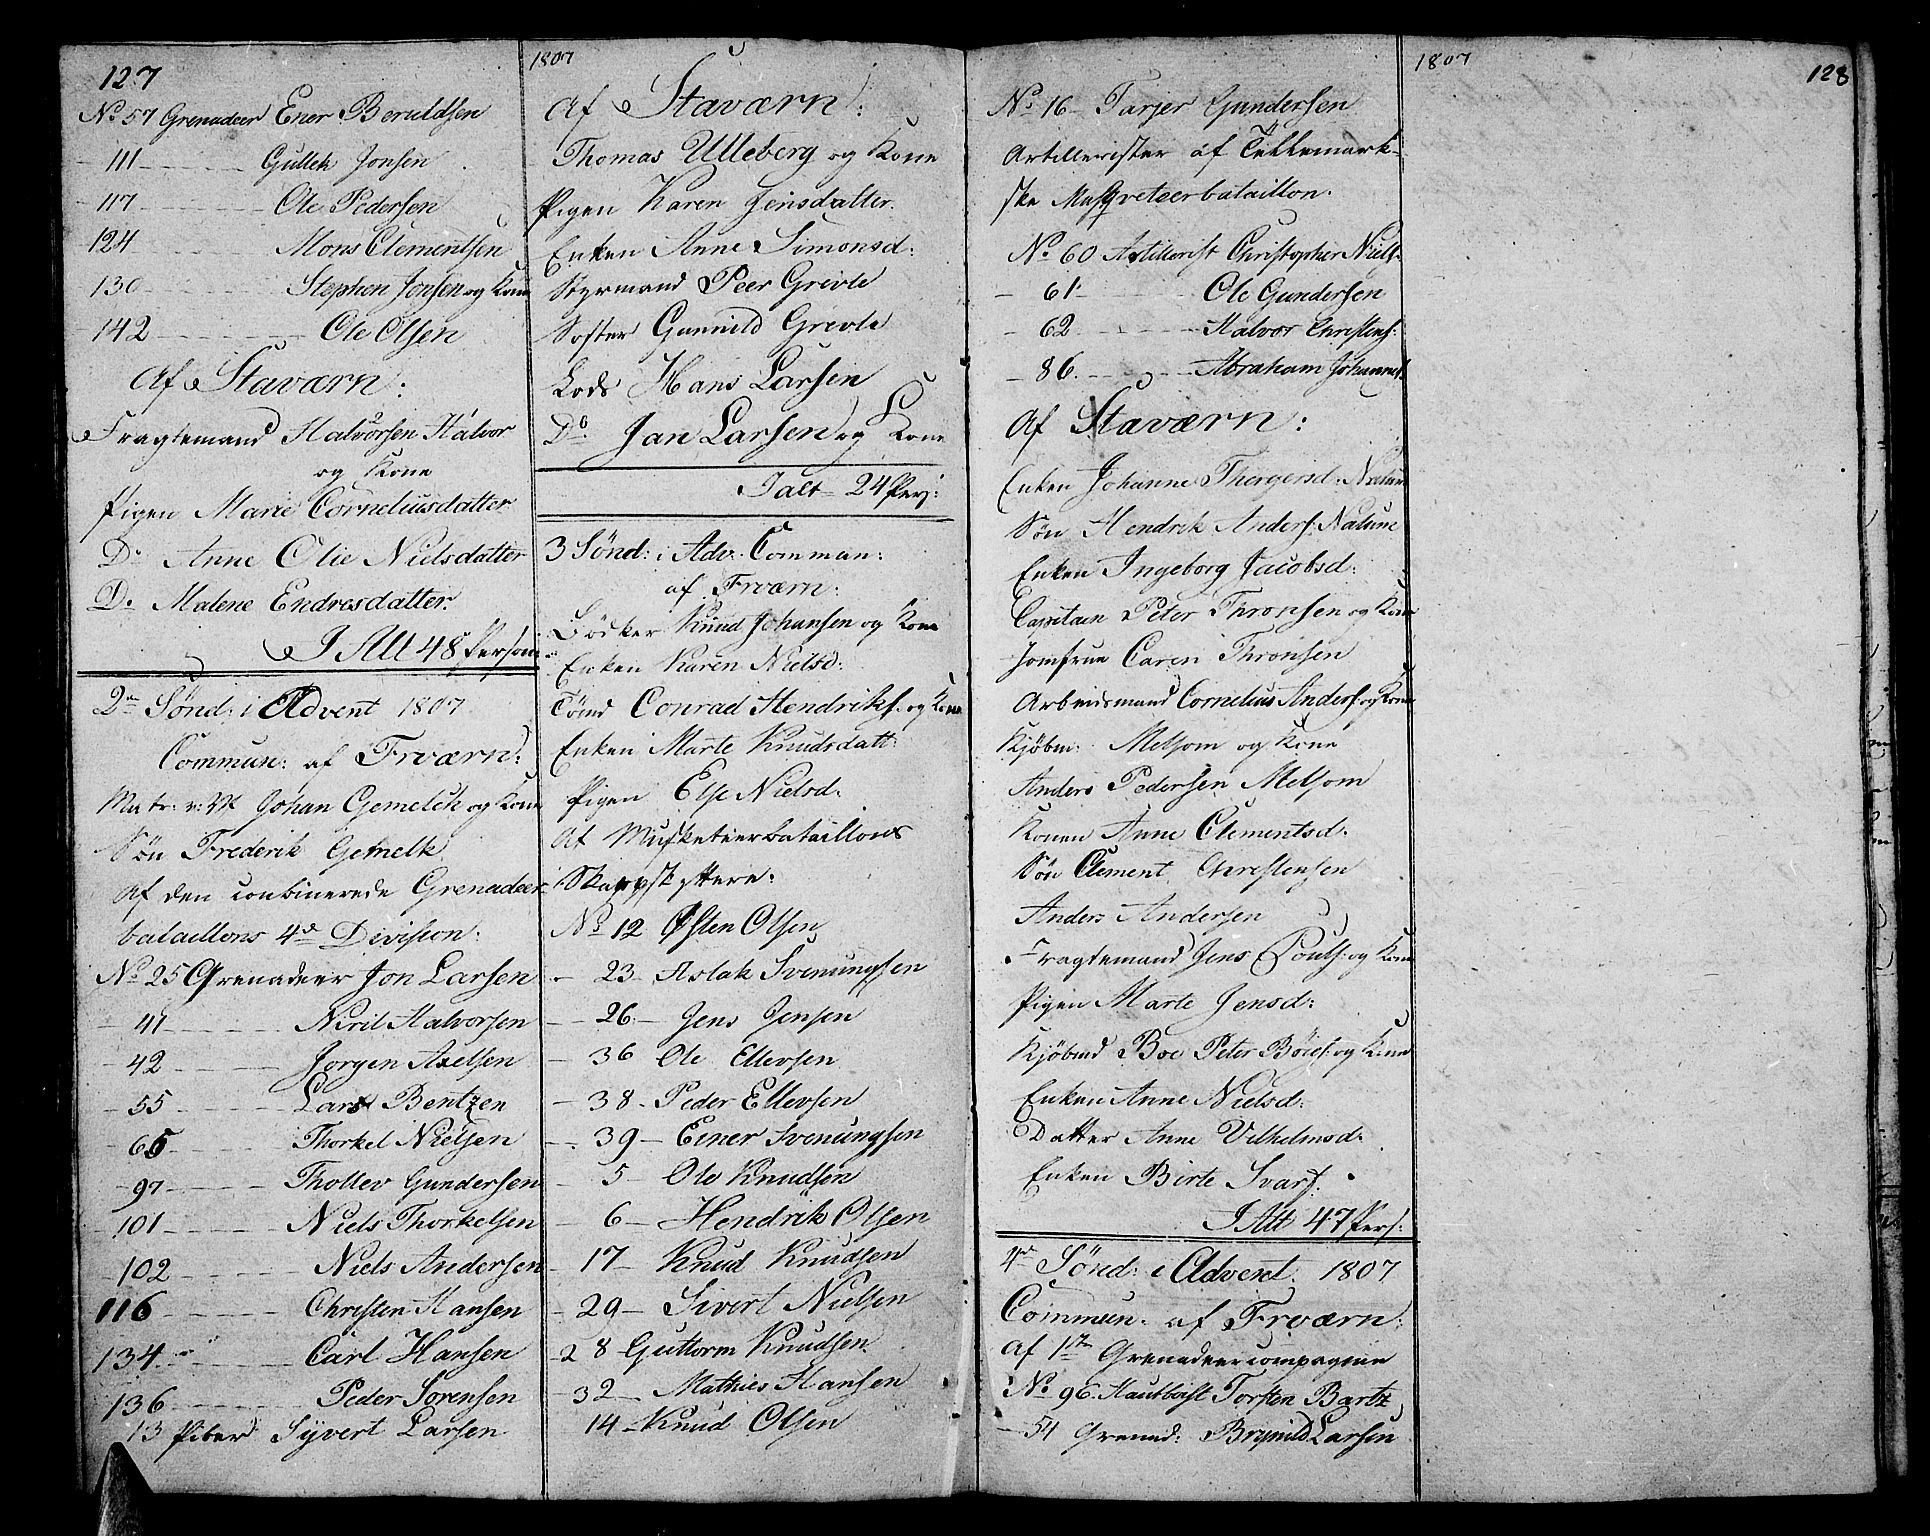 127
No 57 Grenadeer Ener Beruldsen
- 111 - Gullek Jonsen
- 117 - Ole Pedersen
124 - Mons Clementsen
130 - Stephen Jonsen og Kone
- 142 - Ole Olsen
Af Staværn:
Fragtemand Halvorsen Halvor
og Kone
Pigen Marie Corneliusdatter
Do Anne Olie Nielsdatter
Do Malene Endresdatter.
I Alt 48 Person:
2den Sønd: i Advent 1807
Commun: af Frværn:
Johan Gemelck og Kone
Søn Frederik Gemelk
Af den conbinerede Grenadeer
bataillons 4de Division:
No 25 Grenadeer Jon Larsen
- 41 - Niril Halvorsen
- 42 - Jørgen Axelsen
- 55 - Lars Bentzen
- 65 - Thorkel Nielsen
- 97 - Thollev Gundersen
- 101 - Niels Thorkelsen
- 102 - Niels Andersen
116 - Christen Hansen
134 - Carl Hansen
136 - Peder Sørensen
- 13 Piber Syvert Larsen
1807
Af Staværn:
Thomas Ulleberg og Kone
Pigen Karen Jensdatter.
Enken Anne Simonsd:
Styrmand Peer Grevle
Søster Gunnild Grevle
Lods Hans Larsen
Do Jan Larsen og Kone
I alt 24 Pers:
3 Sønd: i Adv. Commun:
af Frværn:
Bødker Knud Johansen og Kone
Enken Karen Nielsd:
Tømd Conrad Hendriks. og Kone
Enken Marte Knudsdatt:
Pigen Else Nielsd:
Af Musketeerbataillons
Skarpskyttere:
No 12 Østen Olsen
- 23 - Aslak Svenungsen
- 26 - Jens Jensen
- 36 Ole Ellevsen
- 38 - Peder Ellevsen
- 39 - Einer Svenungsen
- 5 - Ole Knudsen
- 6 - Hendrik Olsen
- 17 - Knud Knudsen
- 29 - Sivert Nielsen
- 28 Guttorm Knudsen
32 - Mathies Hansen
14 - Knud Olsen
No 16 - Tarjer Gundersen
Artillerister af Tellemark-
ske Musqveteerbataillon.
No 60 Artillerist Christopher Niels:
- 61 - Ole Gundersen
- 62 - Halvor Christens:
- 86. - Abraham Johannes:
Af Staværn:
Enken Johanne Thergersd:
Søn Hendrik Anders: Nalum
Enken Ingeborg Jacobsd:
Capitain Peter Thronsen og Kone
Jomfrue Caren Thronsen
Arbeidsmand Cornelius Anders: og Kone
Kjøbm: Melsom og Kone
Anders Pedersen Melsom
Konen Anne Clementsd:
Søn Clement Christensen
Anders Andersen
Fragtemand Jens Pouls: og Kone
Pigen Marte Jensd:
Kjøbmd Boe Peter Böies: og Kone
Enken Anne Nielsd:
Datter Anne Vilhelmsd:
Enken Birte Svarf.
I Alt 47 Pers:
4de Sønd: i Advent. 1807
Commun: af Frværn:
Af 1ste Grenadeercompagnie
No 96. Hautboist Torsten Bartz
- 54 Grenad: Brynild Larsen
1807
128